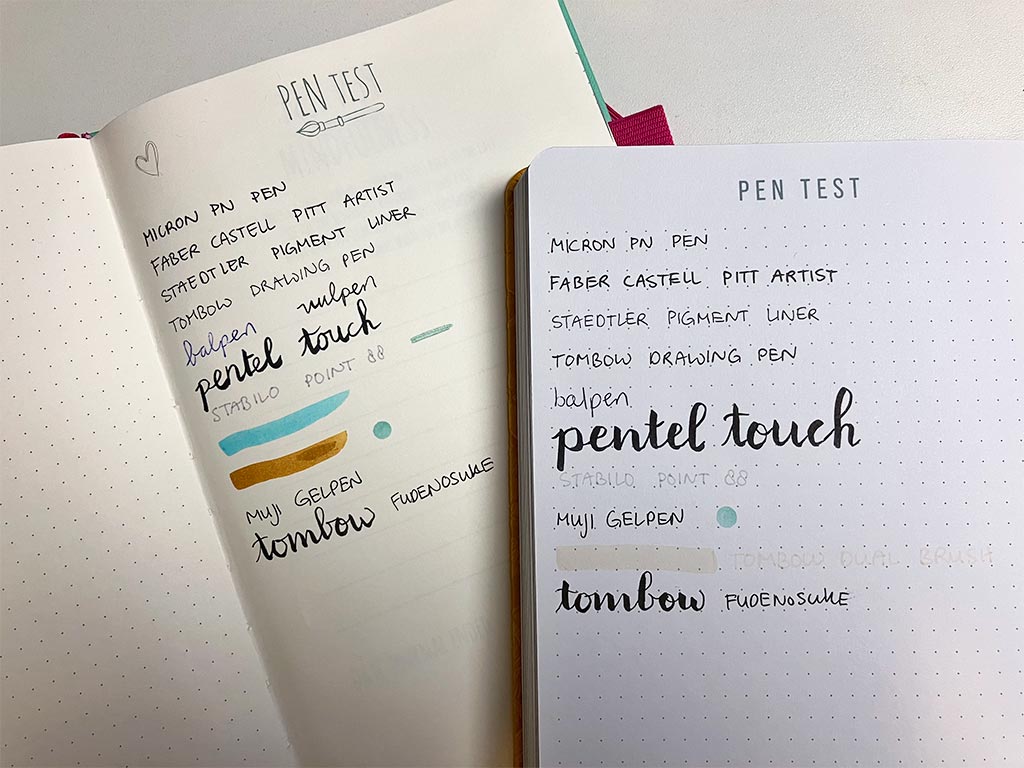 PEN TEST
MICRON PN PEN
FABER CASTELL PITT ARTIST
STAEDTLER PIGMENT LINER
TOMBOW DRAWING PEN
balpen vulpen
pentel touch
STABILO POINT 88
MUJI GELPEN
tombow FUDENOSUKE
PEN TEST
MICRON PN PEN
FABER CASTELL PITT ARTIST
STAEDTLER PIGMENT LINER
TOMBOW DRAWING PEN
balpen
pentel touch
STABILO POINT 88
MUJI GELPEN
TOMBOW DUAL BRUSH
tombow FUDENOSUKE